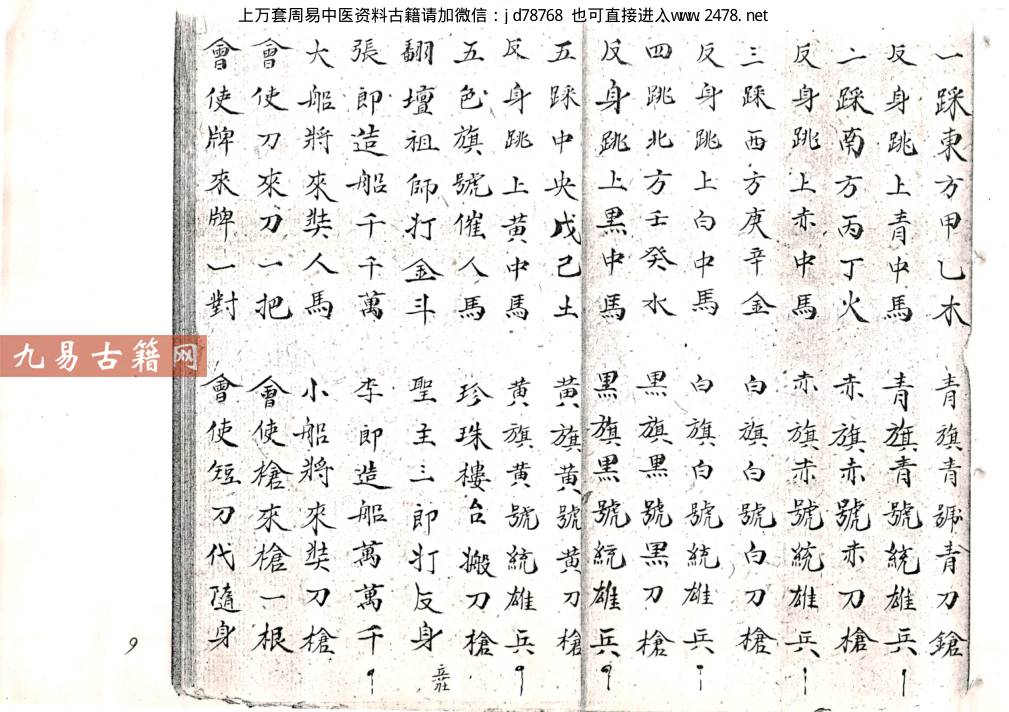 上万套周易中医资料古籍请加微信：jd78768 也可直接进入www.2478.net
一踩東方甲乙木 青旗青號青刀鎗
反身跳上青中馬 青旗青號統雄兵
二踩南方丙丁火 赤旗赤號赤刀槍
反身跳上赤中馬 赤旗赤號統雄兵
三踩西方庚辛金 白旗白號白刀槍
反身跳上白中馬 白旗白號統雄兵
四跳北方壬癸水 黑旗黑號黑刀槍
反身跳上黑中馬 黑旗黑號統雄兵
五踩中央戊己土 黄旗黄號黄刀槍
反身跳上黄中馬 黄旗黄號統雄兵
五色旗號催人馬 珍珠樓台搬刀槍
翻壇祖師打金斗 聖主三郎打反身
張郎造船千千萬 李郎造船萬萬千
大船將來奘人馬 小船將來奘刀槍
會使刀來刀一把 會使槍來槍一根
會使牌來牌一對 會使短刀代隨身
九易古籍网
9